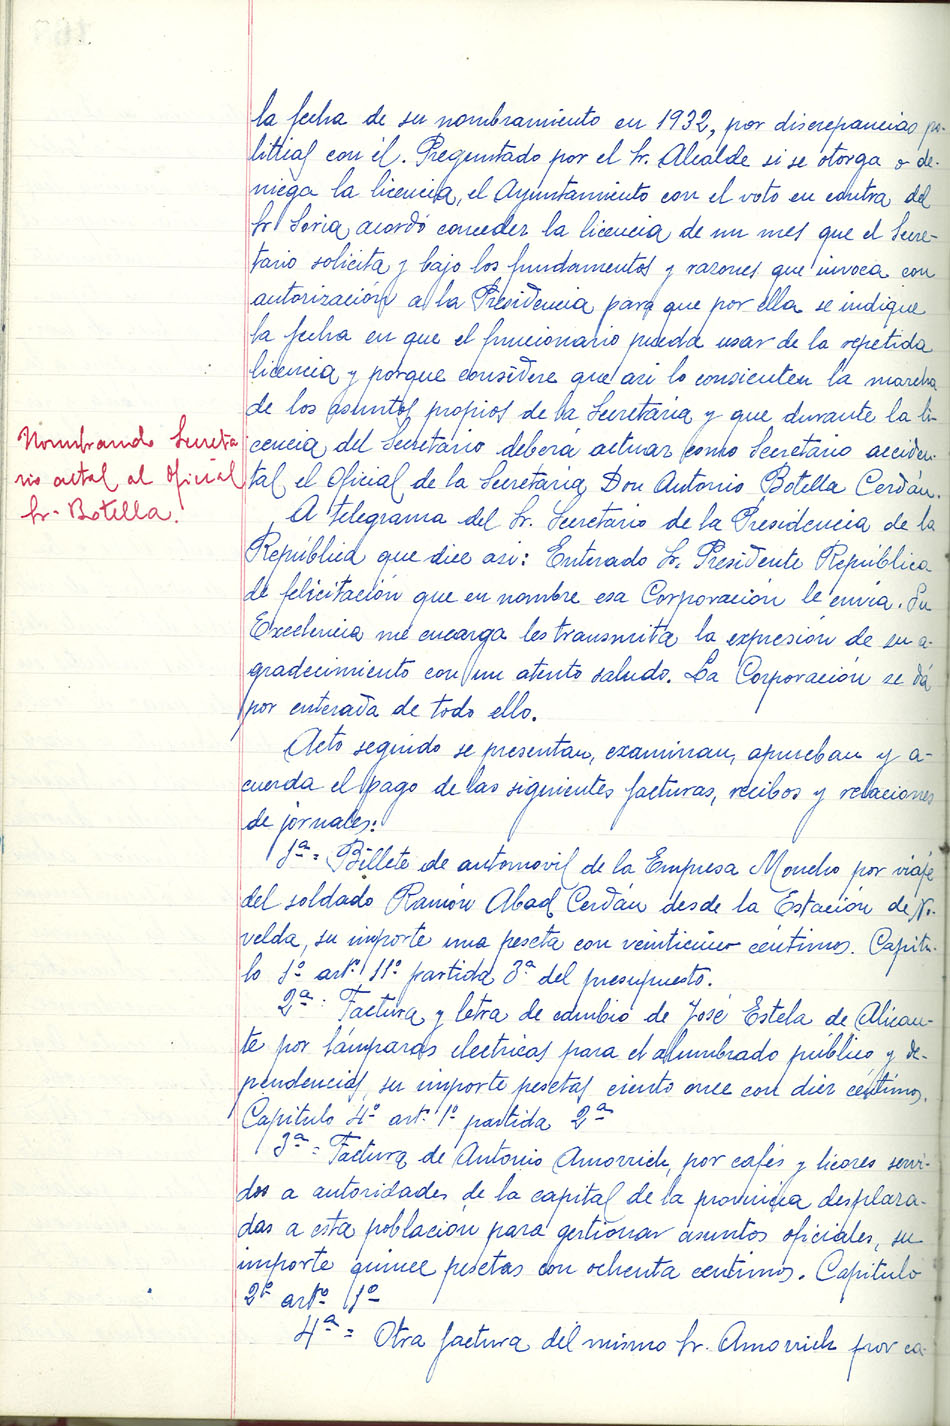 la fecha de su nombramiento en 1932, por discrepancias po-
liticas con él. Preguntado por el Sr. Alcalde si se otorga o de-
niega la licencia, el Ayuntamiento con el voto en contra del
Sr Soria acordó conceder la licencia de un mes que el Secre-
tario solicita y bajo los fundamentos y razones que invoca con
autorización a la Presidencia para que por ella se indique
la fecha en que el funcionario pueda usar de la repetida
licencia y porque considere que asi lo consienten la marcha
de los asuntos propios de la Secretaria y que durante la li-
cencia del Secretario deberá actuar como Secretario acciden-
tal el Oficial de la Secretaria Don Antonio Botella Cerdán.
Nombrando Secreta
rio actal al Oficial
Sr. Botella.
A telegrama del Sr. Secretario de la Presidencia de la
República que dice asi: Enterado Sr. Presidente República
de felicitación que en nombre esa Corporación le envia. Su
Excelencia me encarga les transmita la expresión de su a-
gradecimiento con un atento saludo. La Corporación se dá
por enterada de todo ello.
Acto seguido se presentan, examinan, aprueban y a-
cuerda el pago de las siguientes facturas, recibos y relaciones
de jornales:
1ª = Billete de automovil de la Empresa Moncho por viaje
del soldado Ramón Abad Cerdán desde la Estación de No-
velda, su importe una peseta con veinticinco céntimos. Capitu-
lo 1º artº 11º partida 3ª del presupuesto.
2ª = Factura y letra de cambio de José Estela de Alican-
te por lámparas electricas para el alumbrado público y de-
pendencias, su importe pesetas ciento once con diez céntimos.
Capitulo 4º artº 1º partida 2ª
3ª = Factura de Antonio Amorrich, por cafés y licores servi-
dos a autoridades de la capital de la provincia desplaza-
das a esta población para gestionar asuntos oficiales, su
importe quince pesetas con ochenta centimos. Capitulo
2º artº 1º
4ª = Otra factura del mismo Sr. Amorrich por ca-